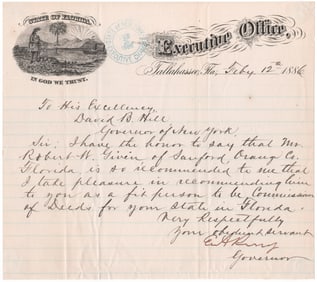 STATE OF FLORIDA
IN GOD WE TRUST.
Executive Office,
Tallahassee, Fla, Feby 12th 1886
To His Excellency,
David B. Hill
Governor of New York
Sir: I have the honor to say that Mr
Robert W. Given of Sanford, Orange Co.
Florida, is so recommended to me that
I take pleasure in recommending him
to you as a fit person to be Commissioner
of Deeds for your State in Florida.
Very Respectfully
Your obedient Servant
E. A. Perry
Governor